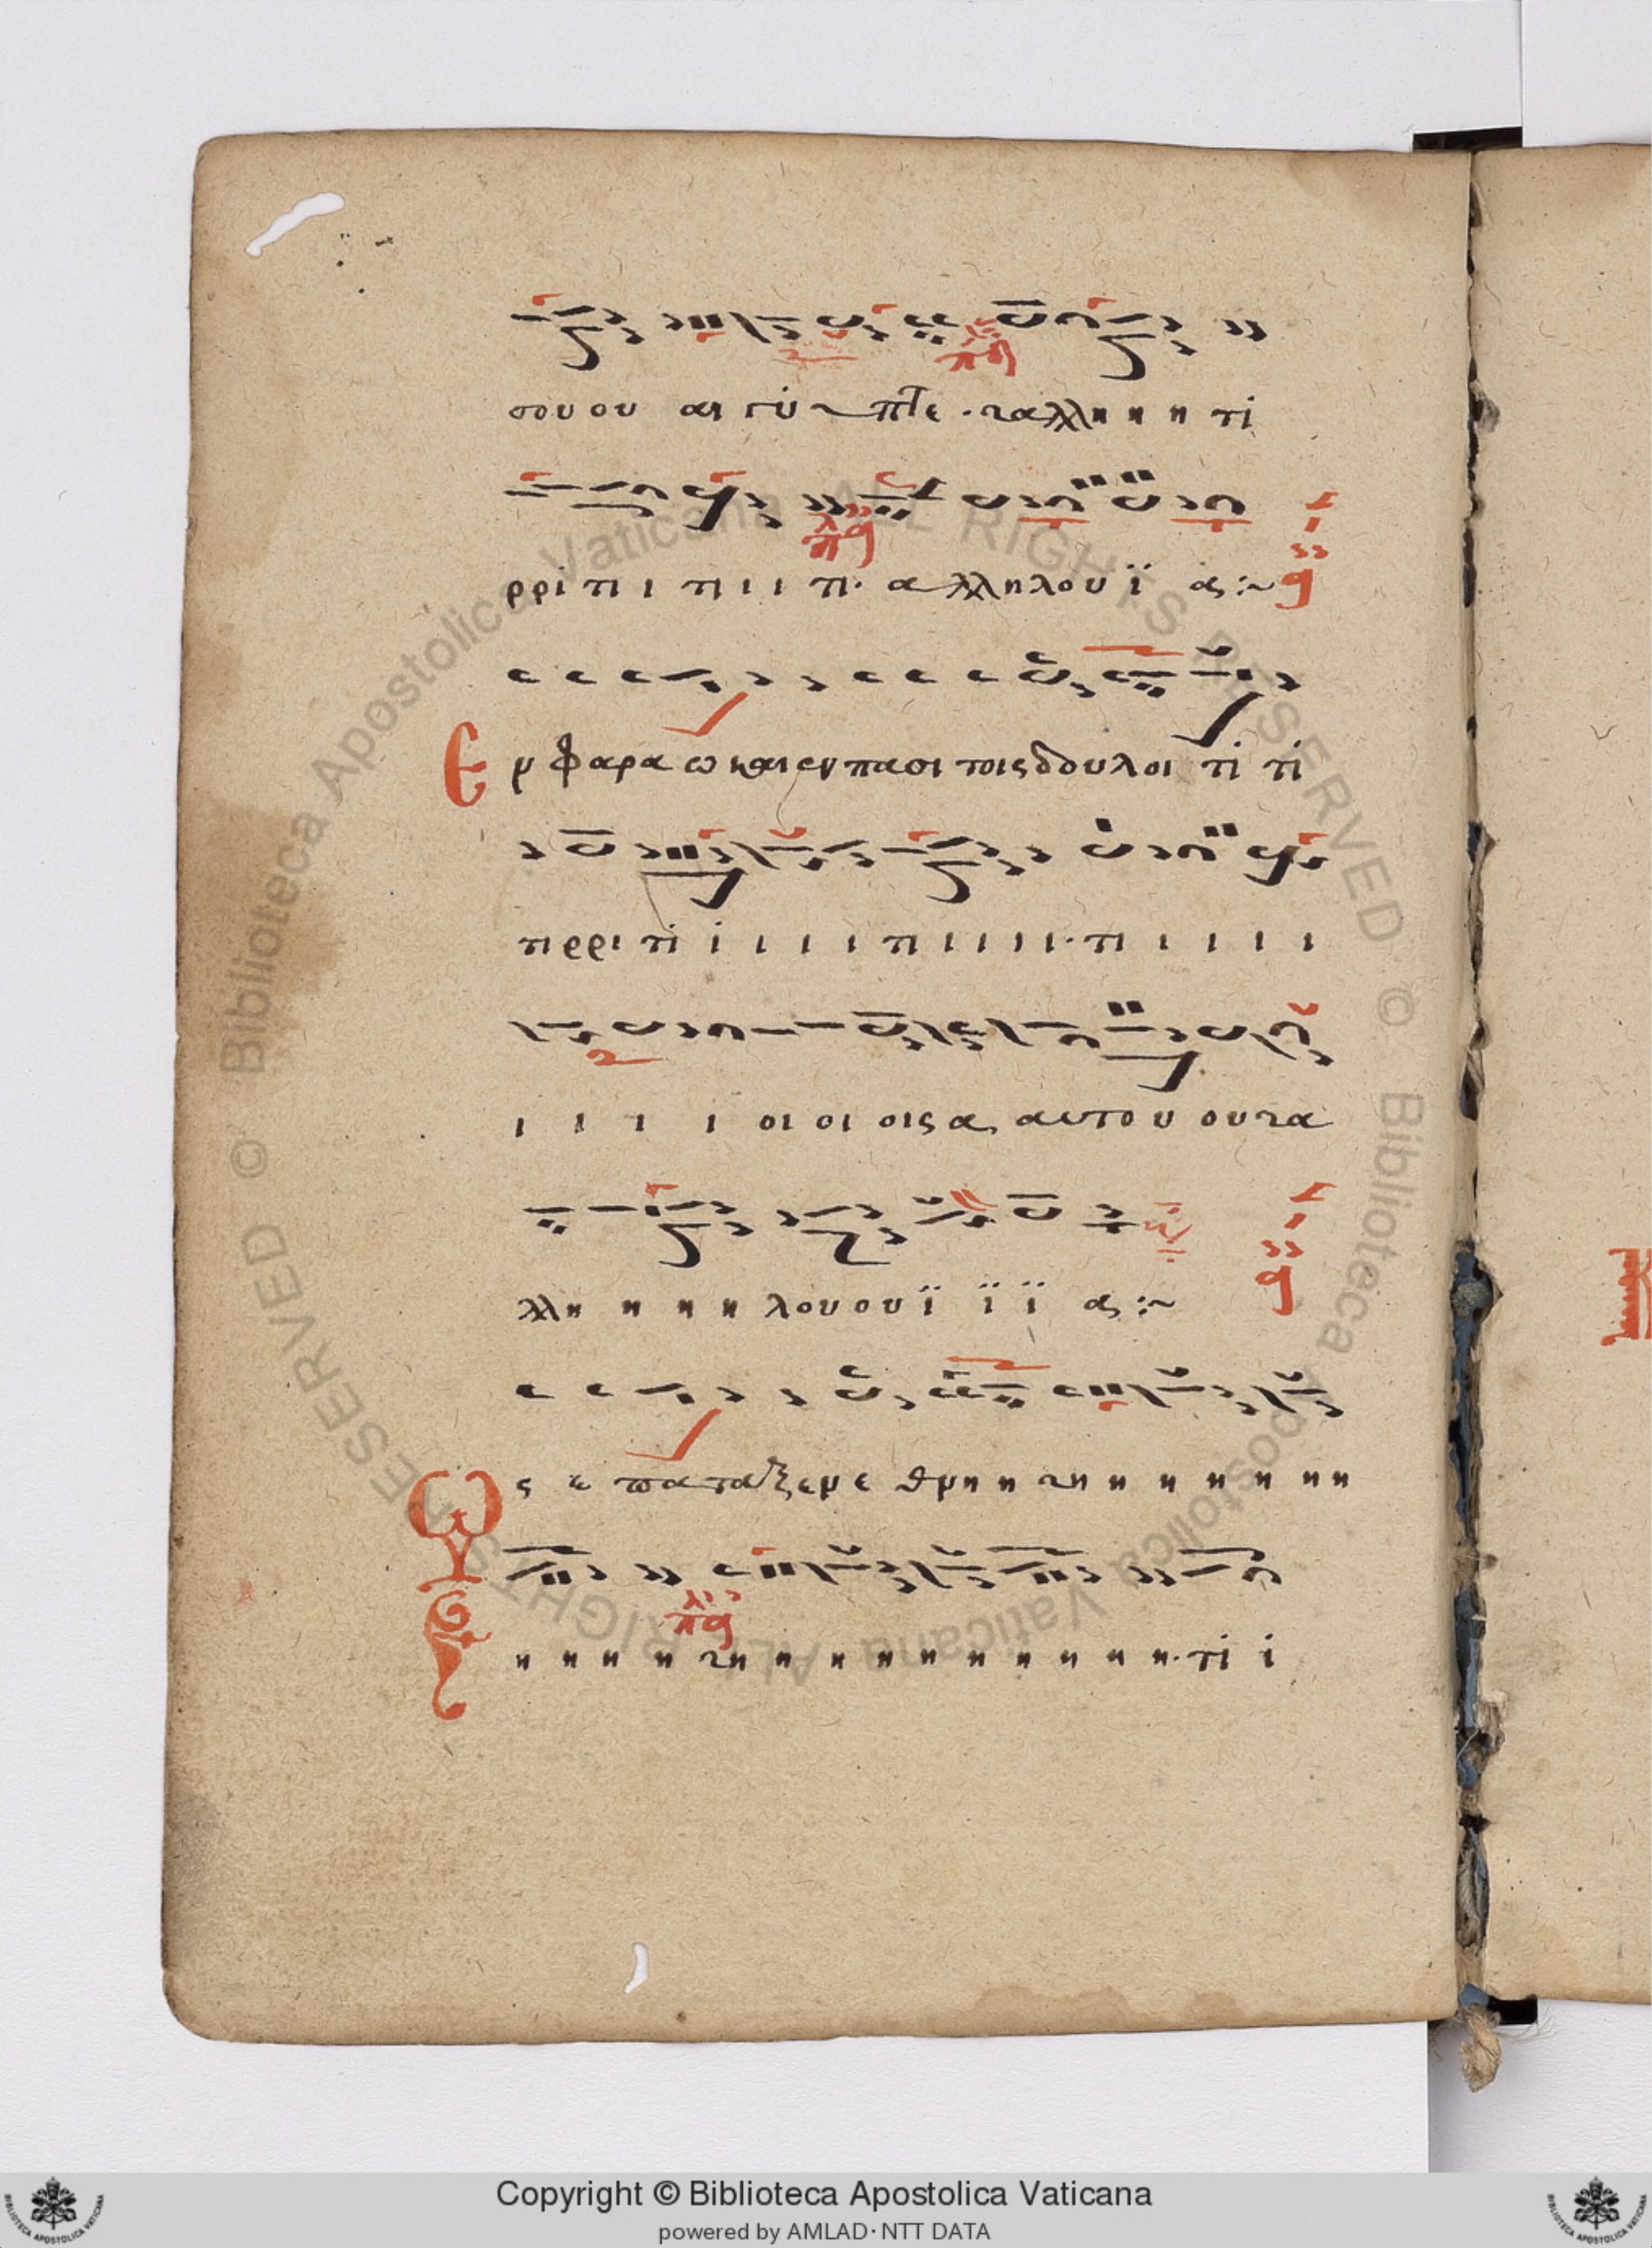 σου ου αι γύ πτε · τα λλη η η τί
ρρι τι ι τι ι ι τι· α λλη λου ϊ α :~
Ε ν φαρα ω και εν πασι τοις δδουλοι τί τί
τι ρρι τι ι ι ι ι ι τι ι ι ι ι ι · τι ι ι ι ι
ι ι ι ι οι οι οις α αυτο υ ου τα
λλη η η η λου ου ϊ ϊ ϊ α :~
Ο ς ε πα ταξεν ε θνη η τη η η η η η η
η η η η τη η η η η η η η η η · τί ι
Copyright © Biblioteca Apostolica Vaticana
powered by AMLAD·NTT DATA